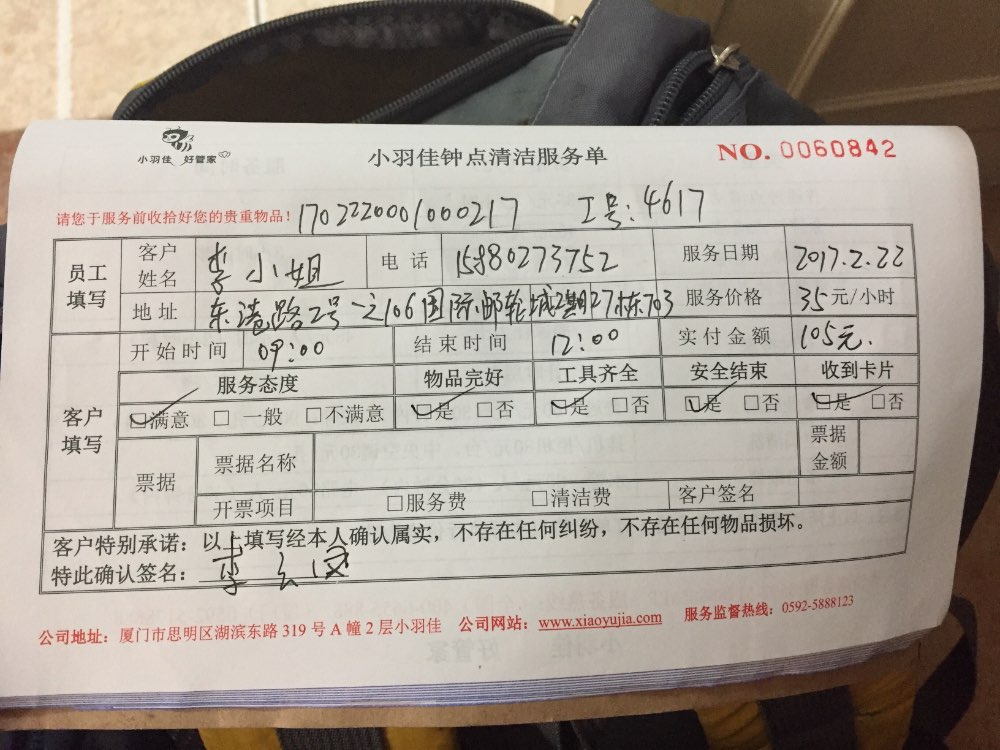 小羽佳 好管家
小羽佳钟点清洁服务单
NO. 0060842
请您于服务前收拾好您的贵重物品! 1702220001000217 工号:4617
员工填写 客户姓名 李小姐 电话 15880273752 服务日期 2017.2.22
地址 东港路2号之106国际邮轮城2期27栋703 服务价格 35元/小时
客户填写 开始时间 09:00 结束时间 12:00 实付金额 105元.
服务态度 物品完好 工具齐全 安全结束 收到卡片
☑满意 □一般 □不满意 ☑是 □否 ☑是 □否 ☑是 □否 ☑是 □否
票据 票据名称 票据金额
开票项目 □服务费 □清洁费 客户签名
客户特别承诺:以上填写经本人确认属实,不存在任何纠纷,不存在任何物品损坏。
特此确认签名:李
公司地址:厦门市思明区湖滨东路319号A幢2层小羽佳 公司网站:www.xiaoyujia.com 服务监督热线:0592-5888123